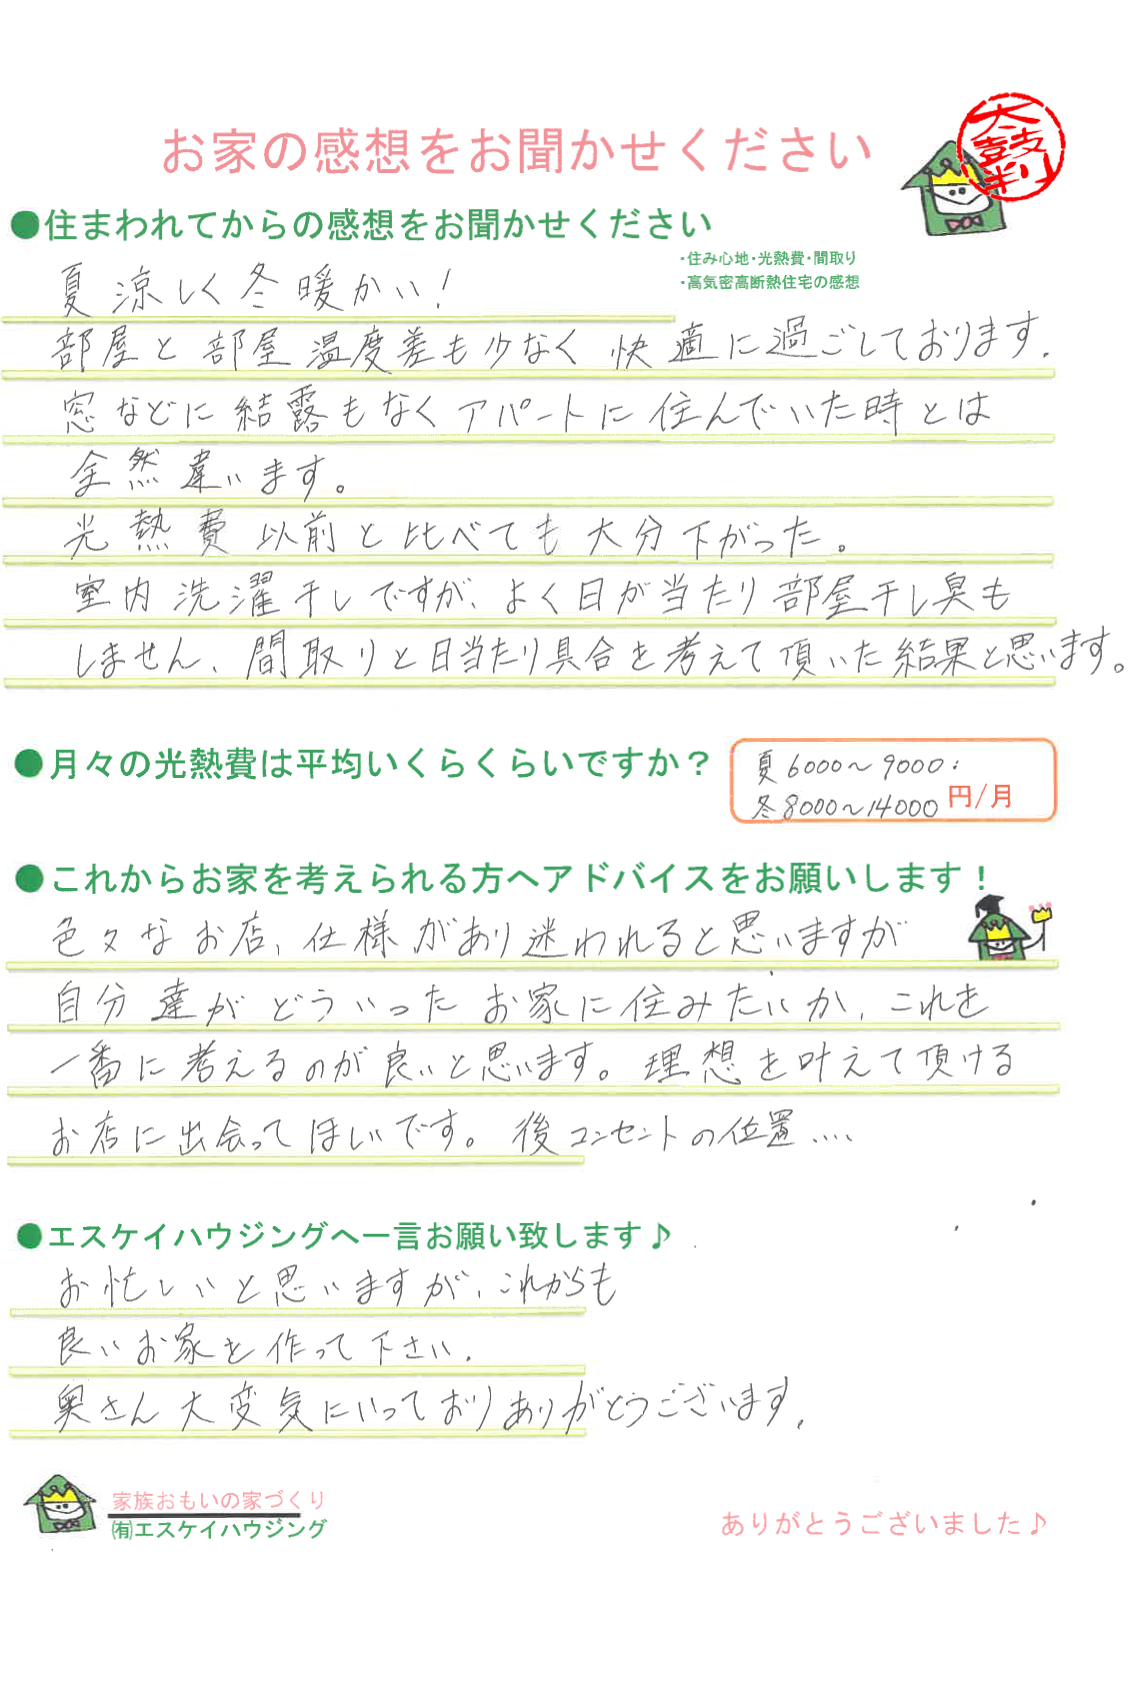 お家の感想をお聞かせください
太鼓判
●住まわれてからの感想をお聞かせください
・住み心地・光熱費・間取り
・高気密高断熱住宅の感想
夏涼しく冬暖かい！
部屋と部屋温度差も少なく快適に過ごしております.
窓などに結露もなくアパートに住んでいた時とは
全然違います。
光熱費以前と比べても大分下がった。
室内洗濯干しですが、よく日が当たり部屋干し臭も
しません、間取りと日当たり具合を考えて頂いた結果と思います。
●月々の光熱費は平均いくらくらいですか？
夏6000〜9000
冬8000〜14000 円/月
●これからお家を考えられる方へアドバイスをお願いします！
色々なお店、仕様があり迷われると思いますが
自分達がどういったお家に住みたいか、これを
一番に考えるのが良いと思います。理想を叶えて頂ける
お店に出会ってほしいです。後コンセントの位置....
●エスケイハウジングへ一言お願い致します♪
お忙しいと思いますが、これからも
良いお家を作って下さい.
奥さん大変気にいっておりありがとうございます.
家族おもいの家づくり
㈲エスケイハウジング
ありがとうございました♪